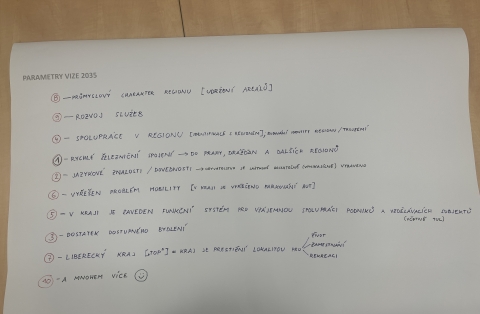 PARAMETRY VIZE 2035
8 – PRŮMYSLOVÝ CHARAKTER REGIONU [UDRŽENÍ AREÁLŮ]
9 – ROZVOJ SLUŽEB
4 – SPOLUPRÁCE V REGIONU [IDENTIFIKACE S REGIONEM], BUDOVÁNÍ IDENTITY REGIONU /
1 – RYCHLÉ ŽELEZNIČNÍ SPOJENÍ → DO PRAHY, DRÁŽĎAN A DALŠÍCH REGIONŮ
2 – JAZYKOVÉ ZNALOSTI / DOVEDNOSTI →
6 – VYŘEŠEN PROBLÉM MOBILITY [V KRAJI JE VYŘEŠENO PARKOVÁNÍ AUT]
5 – V KRAJI JE ZAVEDEN FUNKČNÍ SYSTÉM PRO VZÁJEMNOU SPOLUPRÁCI PODNIKŮ A VZDĚLÁVACÍCH SUBJEKTŮ
(VČETNĚ TUL)
3 – DOSTATEK DOSTUPNÉHO BYDLENÍ
7 – LIBERECKÝ KRAJ [TOP*] = KRAJ JE PRESTIŽNÍ LOKALITOU PRO
ŽIVOT
ZAMĚSTNÁNÍ
REKREACI
10 – A MNOHEM VÍCE ☺